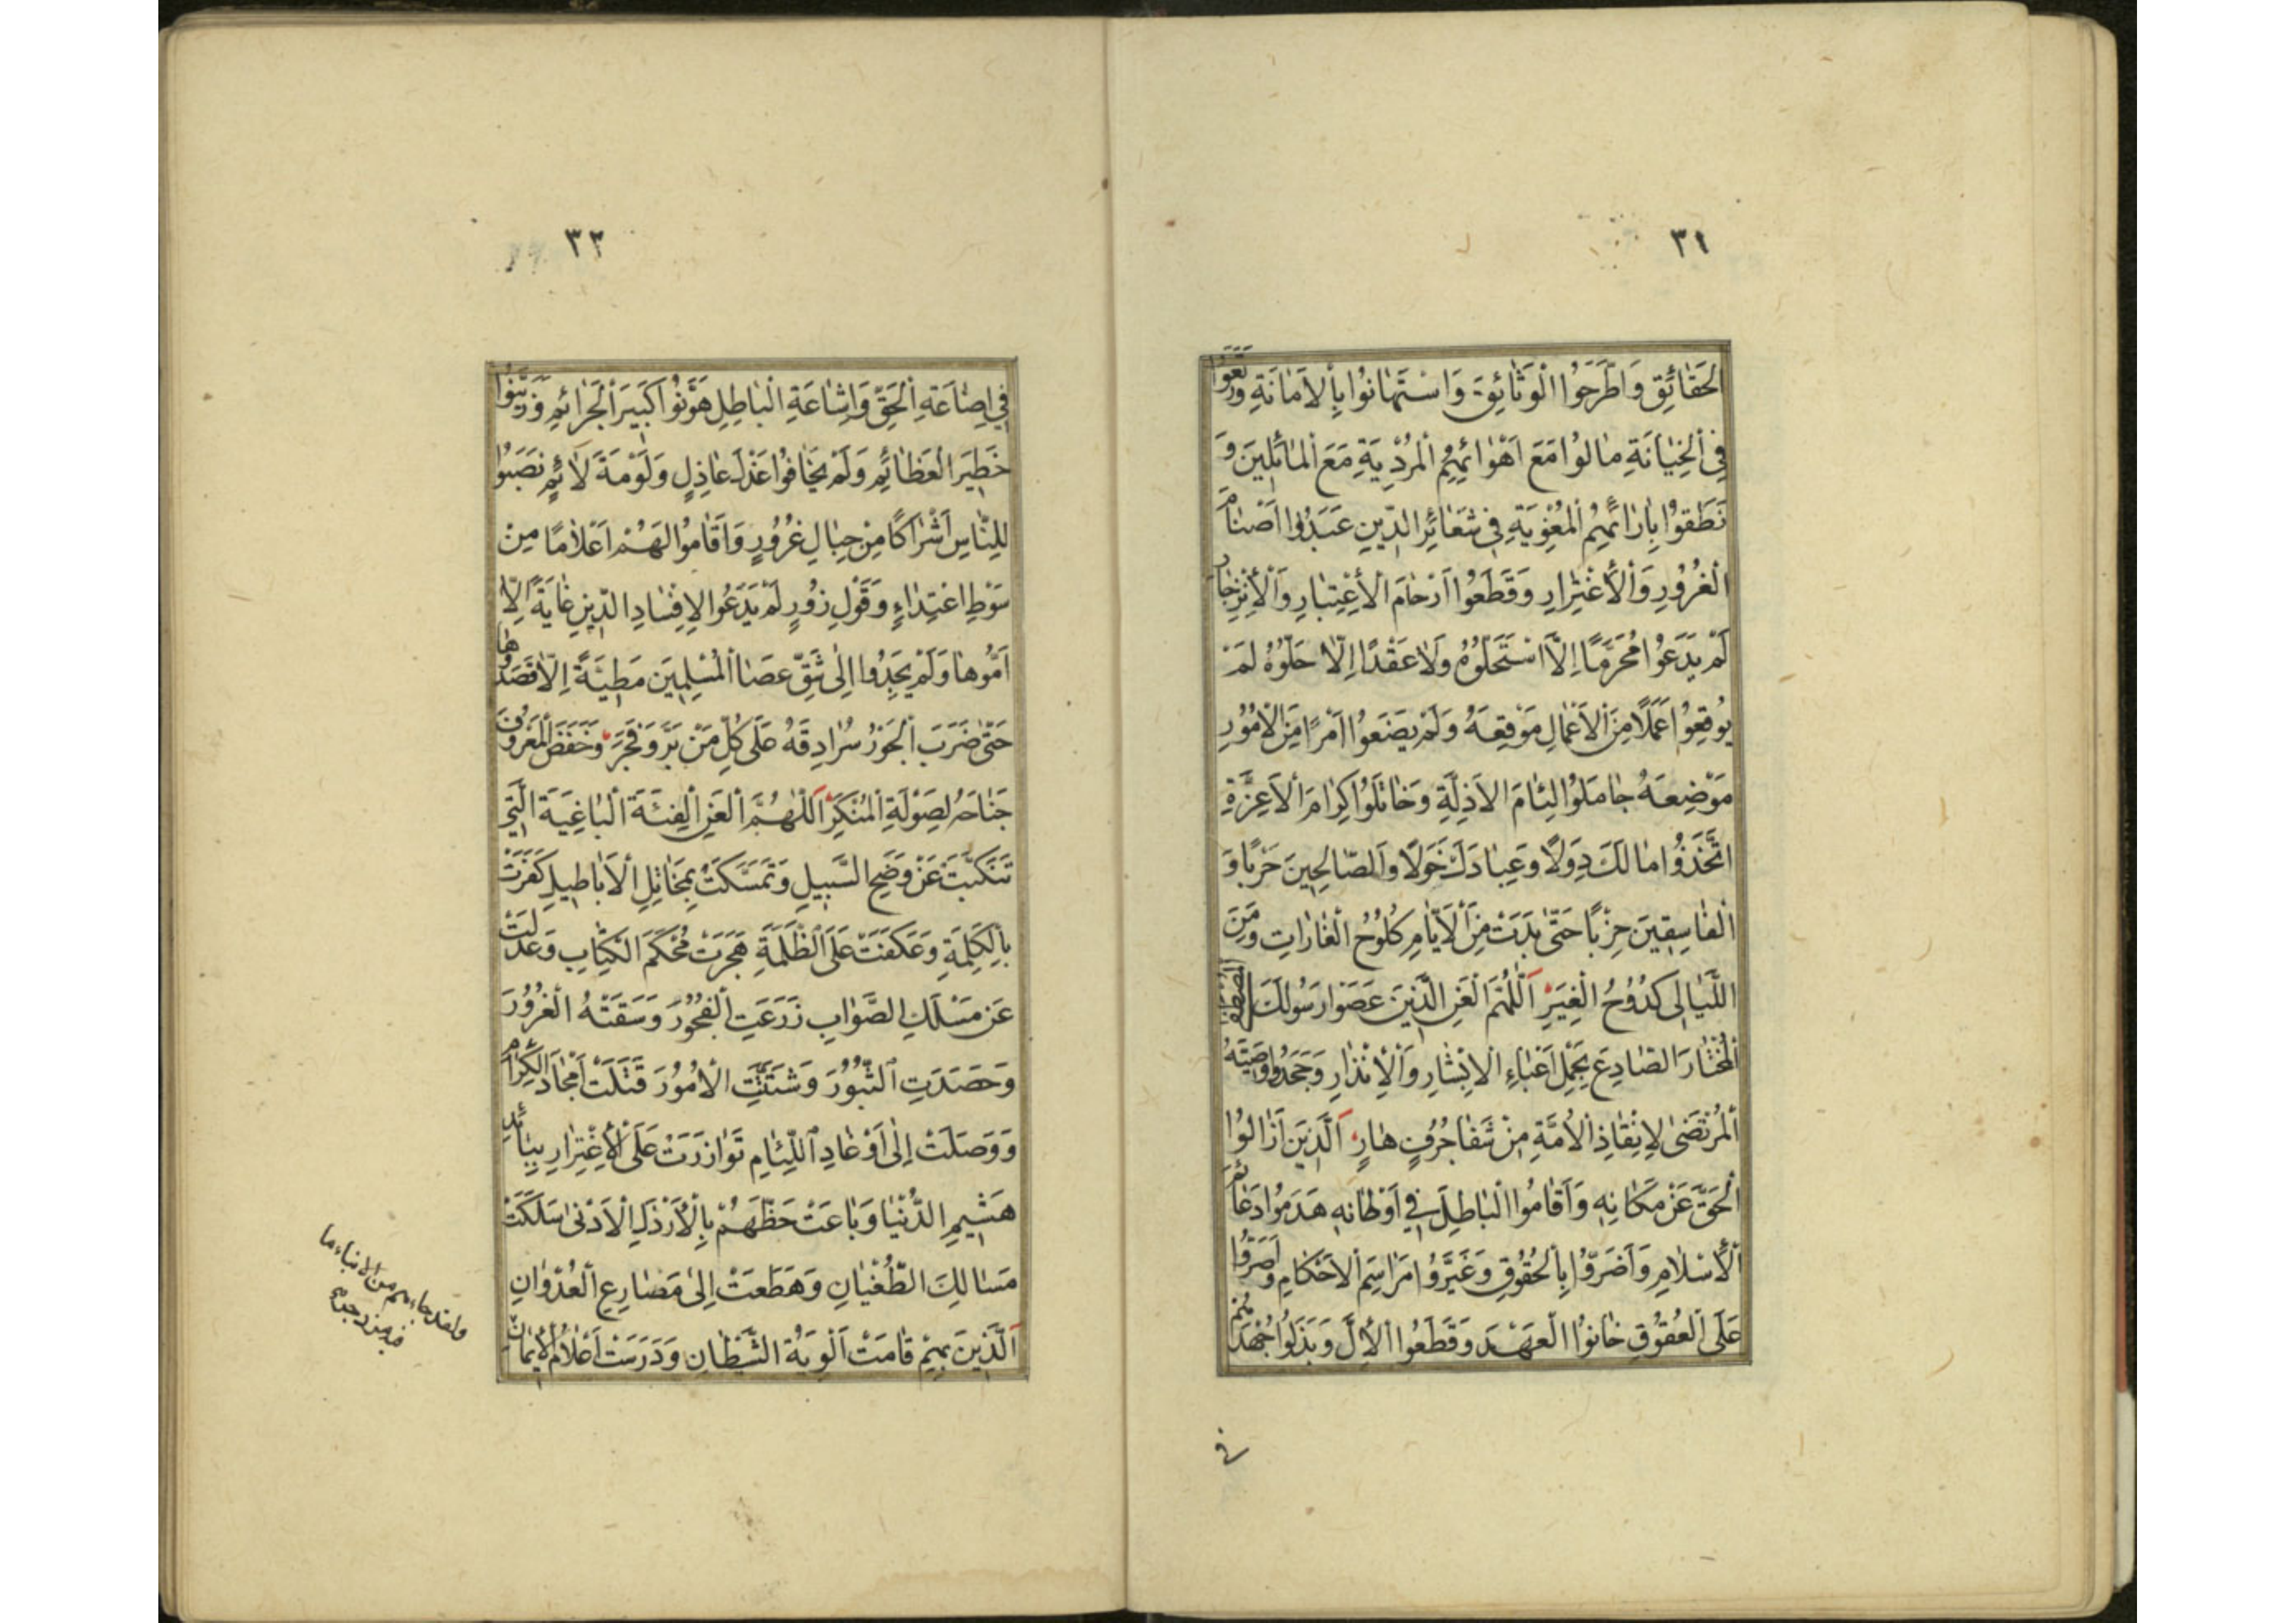 ٣١
الحَقٰائِقِ وَاطَّرَحُوا الْوَثٰائِقَ وَاسْتَهٰانُوا بِالأَمٰانَةِ وَرَتَعُوا
فِي الْخِيٰانَةِ مٰالُوا مَعَ اَهْوٰائِهِمُ الْمُرْدِيَةِ مَعَ الْمٰائِلِينَ وَ
نَطَقُوا بِاٰرٰائِهِمُ الْمُغْوِيَةِ فِي شَعٰائِرِ الدِّينِ عَبَدُوا اَصْنٰامَ
الْغُرُورِ وَالْأِغْتِرٰارِ وَقَطَعُوا اَرْحٰامَ الْأِعْتِبٰارِ وَالْأِنْزِجٰارِ
لَمْ يَدَعُوا مُحَرَّمًا اِلَّا اسْتَحَلُّوهُ وَلاٰ عَقْدًا اِلّٰا حَلُّوهُ لَمْ
يُوقِعُوا عَمَلًا مِنَ الْأَعْمٰالِ مَوْقِعَهُ وَلَمْ يَضَعُوا اَمْرًا مِنَ الْأُمُورِ
مَوْضِعَهُ جٰامَلُوا لِئٰامَ الأَذِلَّةِ وَخٰاتَلُوا كِرٰامَ الأَعِزَّةِ
اتَّخَذُوا مٰالَكَ دِوَلًا وَعِبٰادَكَ خَوَلًا وَالصّٰالِحِينَ حَرْبًا وَ
الْفٰاسِقِينَ حِزْبًا حَتّٰى بَدَتْ مِنَ الْأَيّٰامِ كُلُوحُ الْغٰارٰاتِ وَمِنَ
اللَّيٰالِى كُدُوحُ الْغِيَرِ اَللّٰهُمَّ الْعَنِ الَّذِينَ عَصَوْا رَسُولَكَ الْمُصْطَفَى
الْمُخْتٰارَ الصّٰادِعَ بِحَمْلِ اَعْبٰاءِ الْإِبْشٰارِ وَالْأِنْذٰارِ وَجَحَدُوا وَصِيَّهُ
الْمُرْتَضىٰ لِإِنْقٰاذِ الْأُمَّةِ مِنْ شَفٰا جُرُفٍ هٰارٍ اَلَّذِينَ اَزٰالُوا
الْحَقَّ عَنْ مَكٰانِهِ وَاَقٰامُوا الْبٰاطِلَ فِي اَوْطٰانِهِ هَدَمُوا دَعٰائِمَ
الْأِسْلٰامِ وَاَضَرُّوا بِالْحُقُوقِ وَغَيَّرُوا مَرٰاسِمَ الْأَحْكٰامِ وَاَصَرُّوا
عَلَى الْعُقُوقِ خٰانُوا الْعَهْدَ وَقَطَعُوا الْأِلَّ وَبَذَلُوا جُهْدَهُمْ
فى
٣٢
فِي اِضٰاعَةِ الْحَقِّ وَاِشٰاعَةِ الْبٰاطِلِ هَوَّنُوا اَكْبَرَ الْجَرٰائِمِ وَزَيَّنُوا
خَطِيرَ الْعَظٰائِمِ وَلَمْ يَخٰافُوا عَذْلَ عٰاذِلٍ وَلَوْمَةَ لاٰئِمٍ نَصَبُوا
لِلنّٰاسِ اَشْرٰاكًا مِنْ حِبٰالِ غُرُورٍ وَاَقٰامُوا لَهُمْ اَعْلٰامًا مِنْ
سَوْطِ اعْتِدٰاءٍ وَقَوْلِ زُورٍ لَمْ يَدَعُوا لِإِفْسٰادِ الدِّينِ غٰايَةً اِلّٰا
اَمُّوهٰا وَلَمْ يَجِدُوا اِلٰى شَقِّ عَصَا الْمُسْلِمِينَ مَطِيَّةً اِلّٰا قَصَدُوهٰا
حَتّٰى ضَرَبَ الْجَوْرُ سُرٰادِقَهُ عَلٰى كُلِّ مَنْ بَرَّ وَفَجَرَ وَخَفَضَ الْمَعْرُوفُ
جَنٰاحَهُ لِصَوْلَةِ الْمُنْكَرِ اَللّٰهُمَّ الْعَنِ الْفِئَةَ الْبٰاغِيَةَ الَّتِي
تَنَكَّبَتْ عَنْ وَضَحِ السَّبِيلِ وَتَمَسَّكَتْ بِمَخٰاتِلِ الْأَبٰاطِيلِ كَفَرَتْ
بِالْكَلِمَةِ وَعَكَفَتْ عَلَى الظُّلْمَةِ هَجَرَتْ مُحْكَمَ الْكِتٰابِ وَعَدَلَتْ
عَنْ مَسْلَكِ الصَّوٰابِ زَرَعَتِ الْفُجُورَ وَسَقَتْهُ الْغُرُورَ
وَحَصَدَتِ الثُّبُورَ وَشَتَّتَتِ الْأُمُورَ قَتَلَتْ اَمْجٰادَ الْكِرٰامِ
وَوَصَلَتْ اِلٰى اَوْغٰادِ اللِّئٰامِ تَوٰازَرَتْ عَلَى الْأِغْتِرٰارِ بِبٰائِدِ
هَشِيمِ الدُّنْيٰا وَبٰاعَتْ حَظَّهُمْ بِالْأَرْذَلِ الْأَدْنىٰ سَلَكَتْ
مَسٰالِكَ الطُّغْيٰانِ وَهَطَعَتْ اِلىٰ مَصٰارِعِ الْعُدْوٰانِ
اَلَّذِينَ بِهِمْ قٰامَتْ اَلْوِيَةُ الشَّيْطٰانِ وَدَرَسَتْ اَعْلٰامُ الْأِيمٰانِ
ولقد جاءهم من الانباء ما
فيه مزدجر